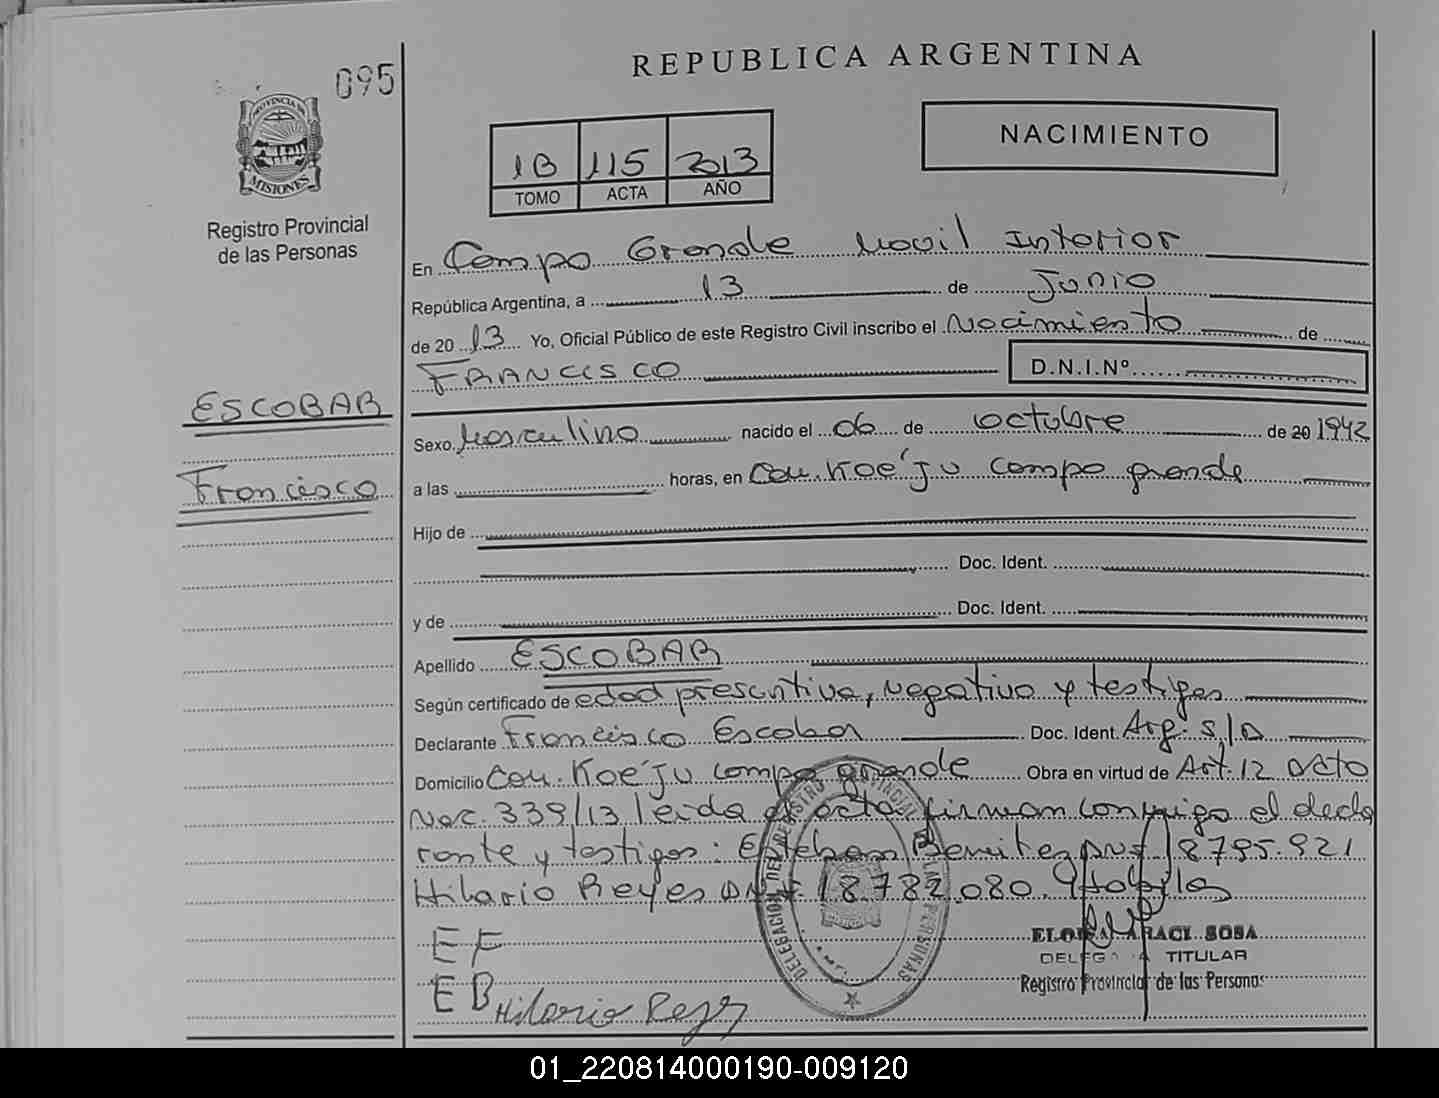 095
REPUBLICA ARGENTINA
PROVINCIA DE
MISIONES
Registro Provincial
de las Personas
1B 115 2013
TOMO ACTA AÑO
NACIMIENTO
En Campo Grande Movil Interior
República Argentina, a 13 de Junio
de 20 13 Yo, Oficial Público de este Registro Civil inscribo el Nacimiento de
FRANCISCO D.N.I.Nº
ESCOBAR
Francisco
Sexo Masculino nacido el 06 de octubre de 20 1942
a las horas, en Com. Koe'Ju campo grande
Hijo de
Doc. Ident.
y de Doc. Ident.
Apellido ESCOBAR
Según certificado de edad presuntiva, negativo y testigos
Declarante Francisco Escobar Doc. Ident. Arg. S/D
Domicilio Com. Koe'Ju campo grande Obra en virtud de Art. 12 Dcto
Nac. 339/13 leida el acta firman conmigo el decla
rante y testigos: Esteban Benitez DNI 18795.921
Hilario Reyes DNI 18.782.080.
EF
EB Hilario Reyes
DELEGACION DEL REGISTRO PROVINCIAL DE LAS PERSONAS
ARACI SOSA
DELEGADA TITULAR
Registro Provincial de las Personas
01_220814000190-009120